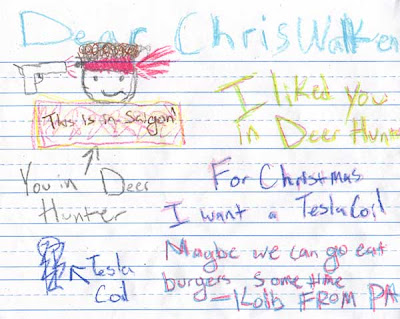 Dear Chris Walken
This is in Saigon!
I liked you
in Deer Hunter
You in Deer
Hunter
For Christmas
I want a Tesla Coil
Tesla
Coil
Maybe we can go eat
burgers sometime
—Kolb FROM PA